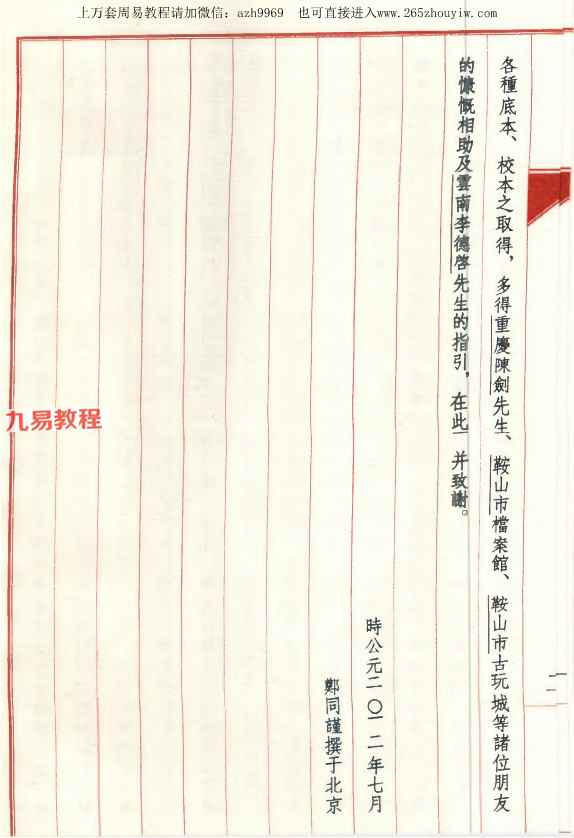 上万套周易教程请加微信：azh9969　也可直接进入www.265zhouyiw.com
各種底本、校本之取得，多得重慶陳劍先生、鞍山市檔案館、鞍山市古玩城等諸位朋友
的慷慨相助及雲南李德啓先生的指引，在此一并致謝。
時公元二〇一二年七月
鄭同謹撰于北京
九易教程